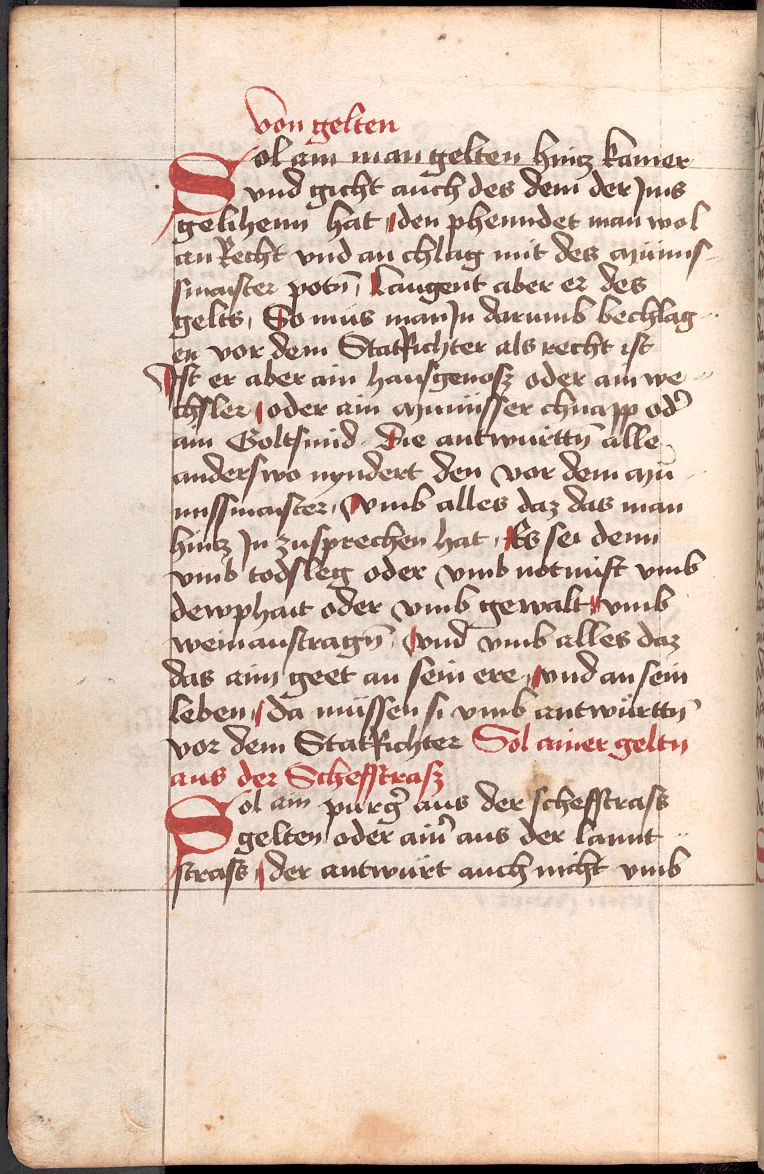 von gelten
Sol ain man gelten hintz kamer
vnd gicht auch des dem der Jms
gelihenn hat , den phenndet man wol
an Recht vnd an chlag mit des münns
smaister potn̄ , Laugent aber er des
gelts , So mus man Jn darumb bechlag
en vor dem StatRichter als recht ist
Ist er aber ain hausgenosz oder ain we
chsler , oder ain münisser chnapp od̛
ain Goltsmid Die antwurttn̄ alle
anderswo nyndert den vor dem mü
nissmaister , vmb alles daz das man
hintz Jn zusprechen hat , Es sei denn
vmb todsleg oder vmb notnüft vmb
dewphait oder vmb gewalt , vmb
weinaustragn̄ , vnd vmb alles daz
das aim geet an sein ere , vnd an sein
leben , da müssen si vmb antwürttn̄
vor dem StatRichter Sol ainer geltn
aus der Scheffstrasz
Sol ain purg̛ aus der scheffstrass
gelten oder ain̛ aus der lannt
strass , der antwürt auch nicht vmb